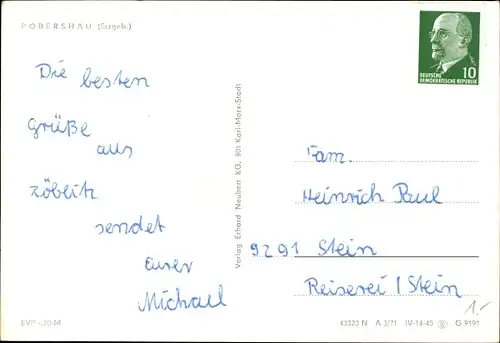 POBERSHAU (Erzgeb.)
Die besten
Grüße
aus
Zöblitz
sendet
Eurer
Michael
EVP -,20 M
Verlag Erhard Neubert KG, 901 Karl-Marx-Stadt
10
DEUTSCHE
DEMOKRATISCHE REPUBLIK
Fam.
Heinrich Paul
9291 Stein
Reiserei / Stein
1.-
43323 N A 3/71 IV-14-45 G 9191